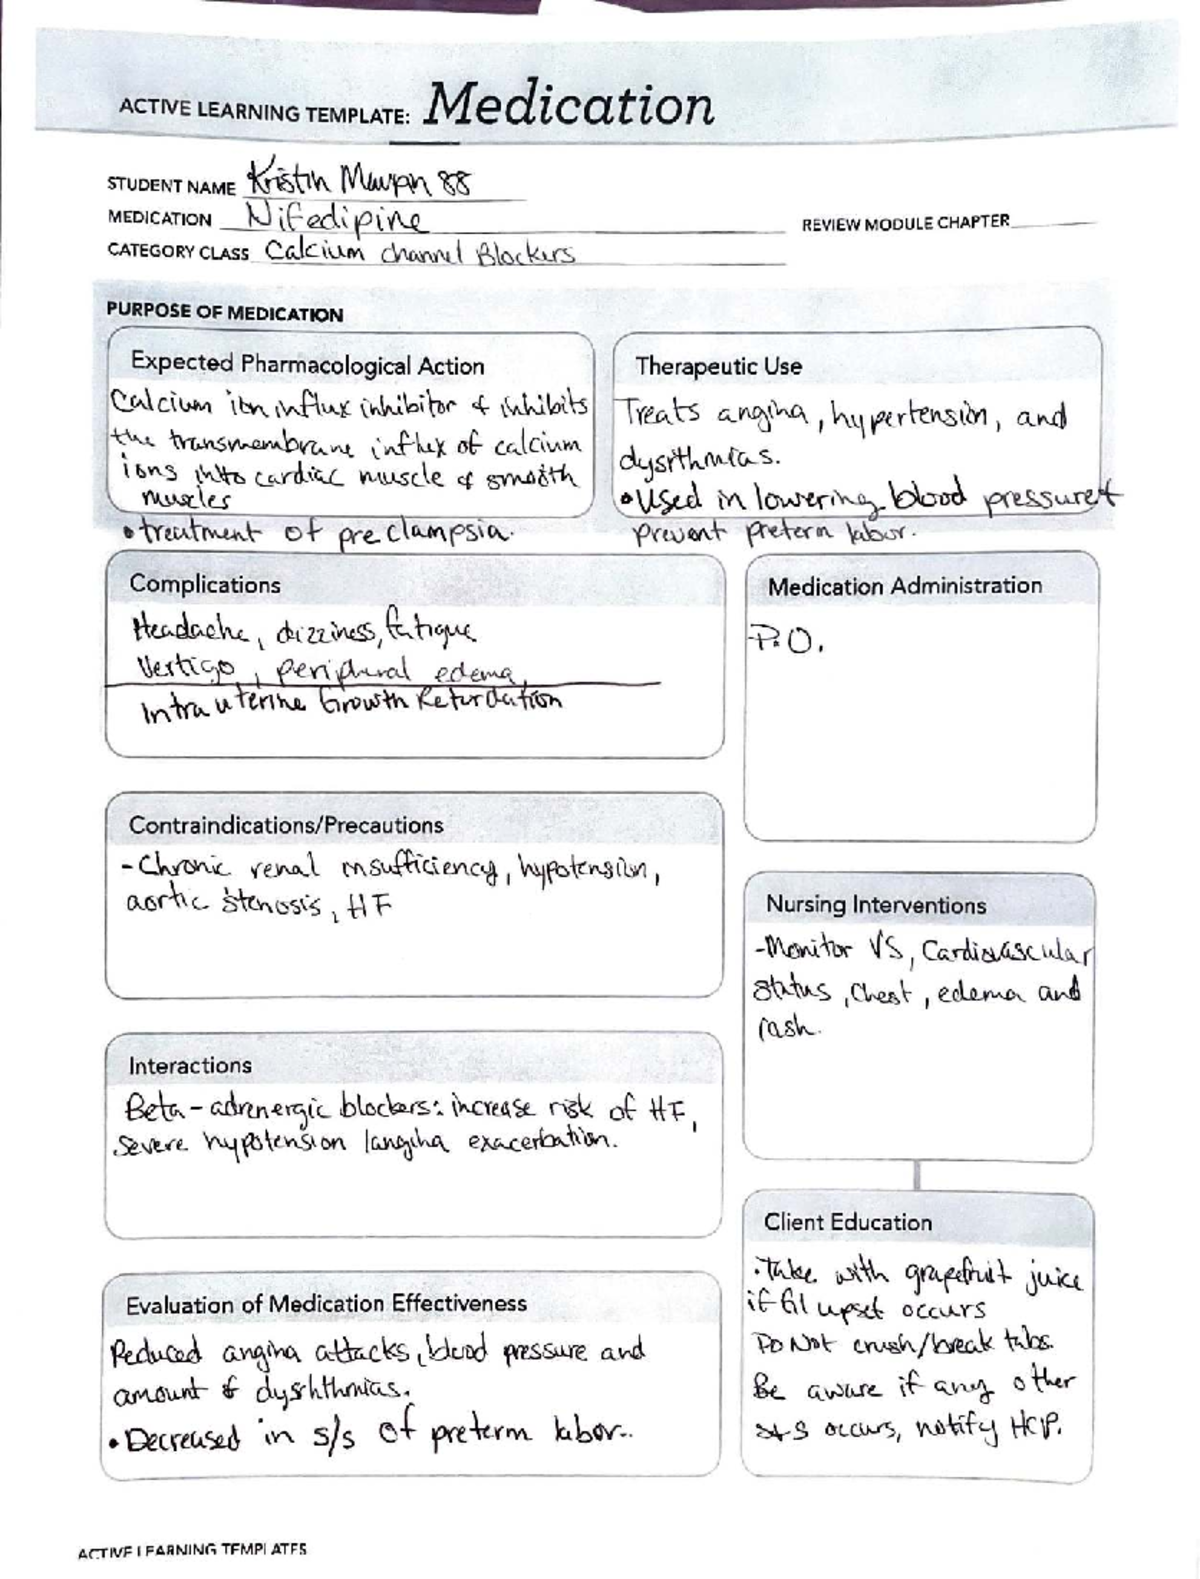 ACTIVE LEARNING TEMPLATE: Medication
STUDENT NAME Kristin 88
MEDICATION Nifedipine
REVIEW MODULE CHAPTER
CATEGORY CLASS Calcium channel Blockers
PURPOSE OF MEDICATION
Expected Pharmacological Action
Calcium ion influx inhibitor & inhibits
the transmembrane influx of calcium
ions into cardiac muscle & smooth
muscles
• treatment of preclampsia.
Therapeutic Use
Treats angina, hypertension, and
dysrthmias.
• Used in lowering blood pressure &
prevent preterm labor.
Complications
Headache, dizziness, fatigue
Vertigo, peripheral edema,
Intrauterine Growth Retardation
Medication Administration
P.O.
Contraindications/Precautions
- Chronic renal insufficiency, hypotension,
aortic stenosis, HF
Nursing Interventions
- Monitor VS, Cardiovascular
status, Chest, edema and
rash.
Interactions
Beta-adrenergic blockers: increase risk of HF,
severe hypotension /angina exacerbation.
Client Education
· Take with grapefruit juice
if GI upset occurs
Do Not crush/break tabs.
Be aware if any other
s+s occurs, notify HCP.
Evaluation of Medication Effectiveness
Reduced angina attacks, blood pressure and
amount of dysrhthmias.
• Decreased in s/s of preterm labor..
ACTIVE LEARNING TEMPLATES